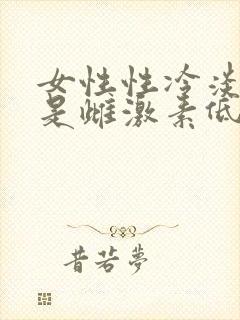 女性性冷淡
是雌激素低
昔若梦